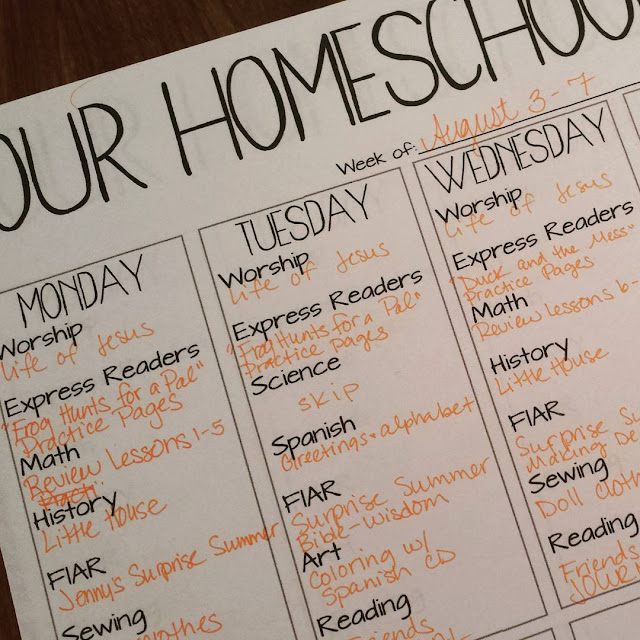 OUR HOMESCHOO
Week of: August 3-7
MONDAY
Worship
Life of Jesus
Express Readers
"Frog Hunts for a Pal"
Practice Pages
Math
Review Lessons 1-5
History
Little House
FIAR
Jenny's Surprise Summer
Sewing
TUESDAY
Worship
Life of Jesus
Express Readers
"Frog Hunts for a Pal"
Practice Pages
Science
skip
Spanish
Greetings + alphabet
FIAR
Surprise Summer
Bible-wisdom
Art
Coloring w/
Spanish CD
Reading
Friends
WEDNESDAY
Worship
Life of Jesus
Express Readers
"Duck and the Mess"
Practice Pages
Math
Review Lessons 6-
History
Little House
FIAR
Surprise Su
Making
Sewing
Doll Cloth
Reading
Friends